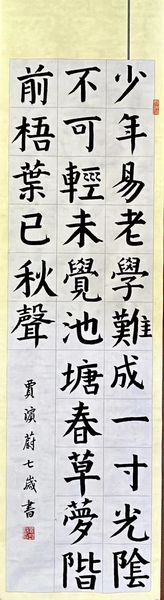 少年易老學難成一寸光陰
不可輕未覺池塘春草夢階
前梧葉已秋聲
賈濱蔚七歲書